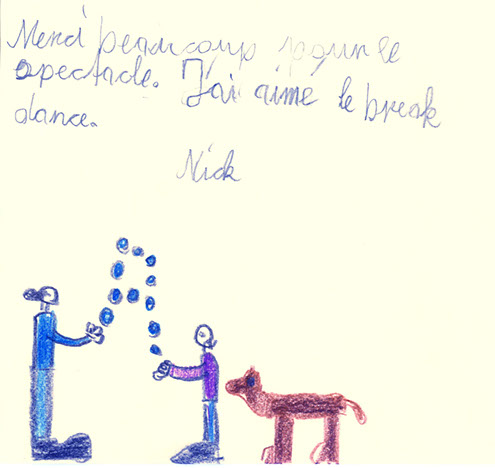 Merci beaucoup pour le
spectacle. J'ai aimé le break
dance.
Nick